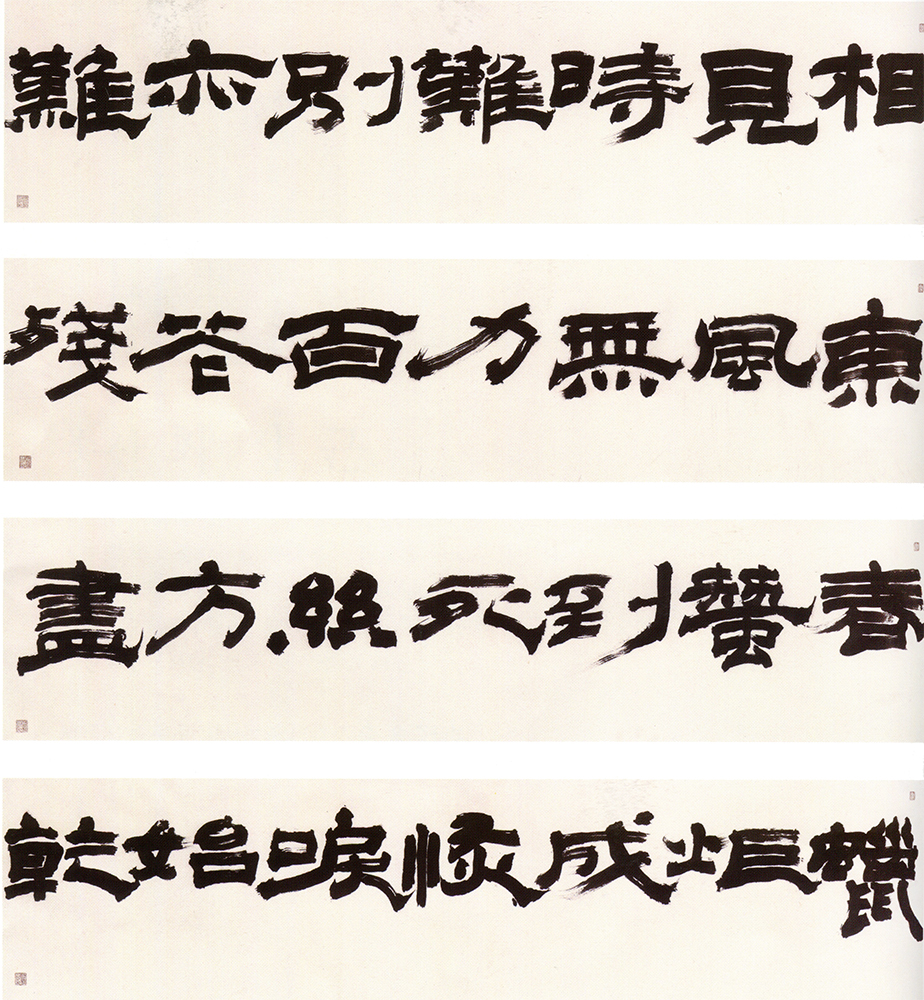 相見時難別亦難
東風無力百花殘
春蠶到死絲方盡
蠟炬成灰淚始乾